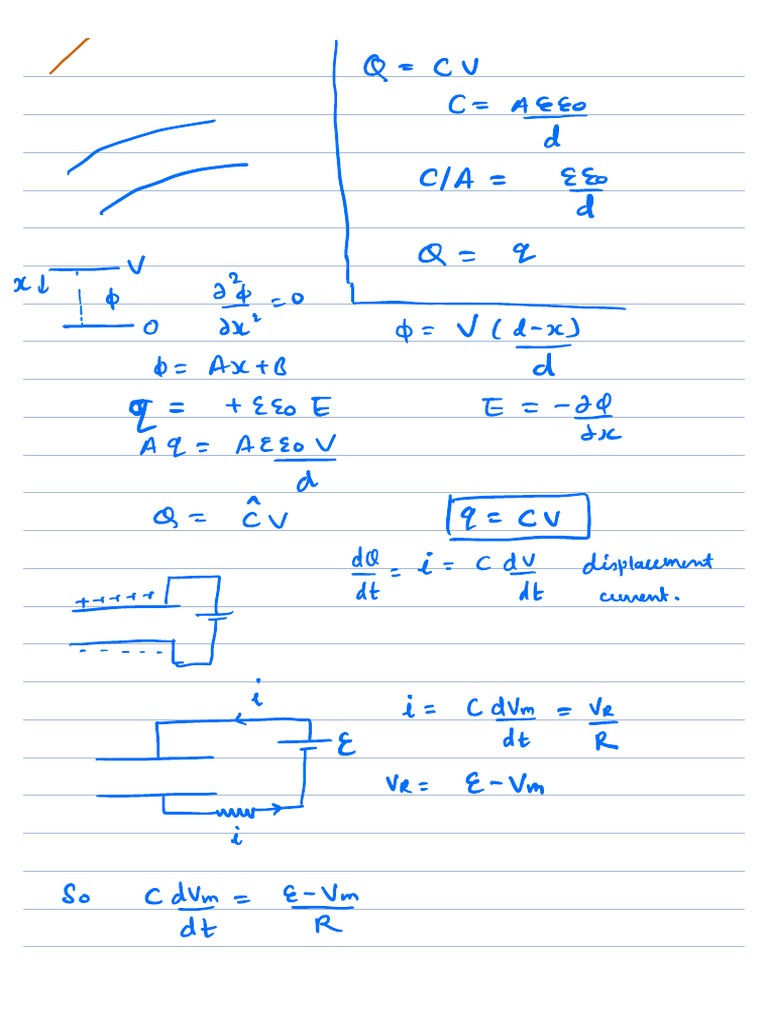 Q = CV
C = Aεε₀/d
C/A = εε₀/d
Q = q
x↓ V
φ
0
∂²φ/∂x² = 0
φ = V(d-x)/d
φ = Ax+B
q = +εε₀E
E = -∂φ/∂x
Aq = Aεε₀V/d
Q = ĈV
q = CV
dQ/dt = i = C dV/dt displacement current.
+++++
-----
i
ℰ
i
i = C dVm/dt = VR/R
VR = ℰ-Vm
So C dVm/dt = ℰ-Vm/R